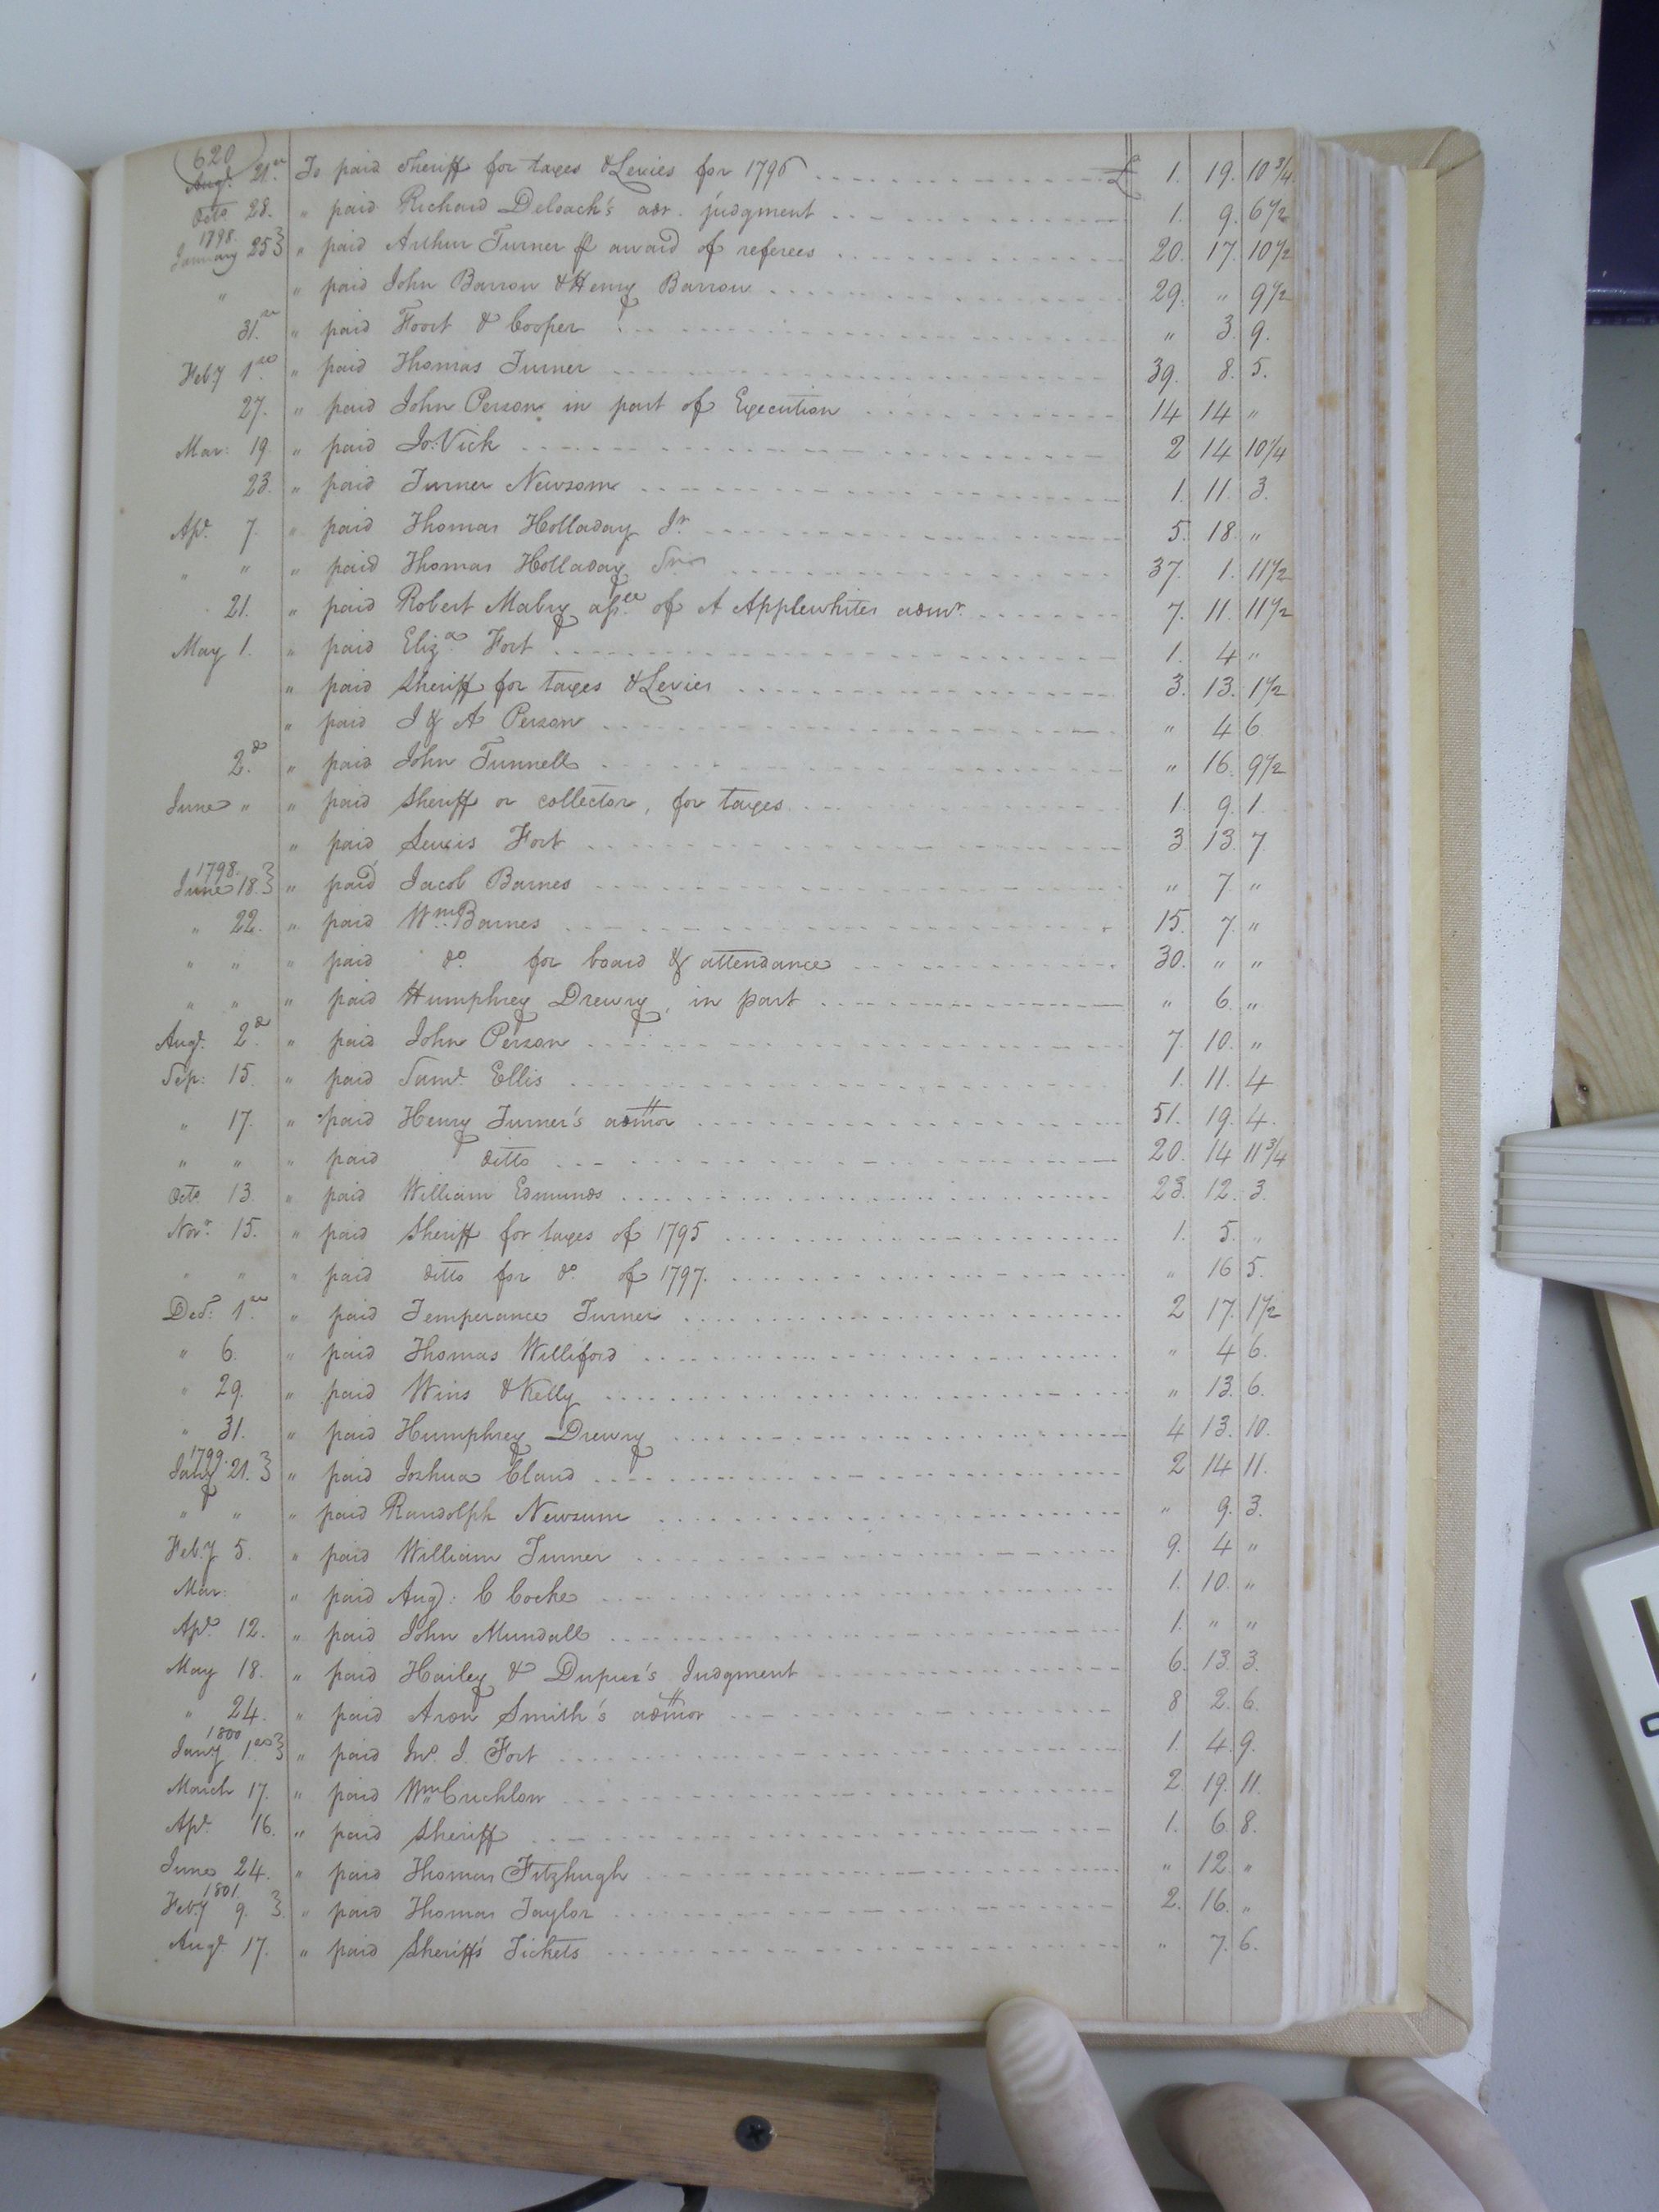 620
Augt. 21st To paid Sheriff for taxes & Levies for 1796 £ 1. 19. 10 3/4
Octo. 28. " paid Richard Deloach's adr. judgment 1. 9. 6 1/2
1798.
January 25 } " paid Arthur Turner p award of referees 20. 17. 10 1/2
" " paid John Barrow & Henry Barrow 29. " 9 1/2
31.st " paid Foort & Cooper " 3. 9.
Feby 1st " paid Thomas Turner 39. 8. 5.
27. " paid John Person in part of Execution 14 14 "
Mar: 19 " paid Jo: Vick 2 14 10 1/4
23. " paid Turner Newsom 1. 11. 3.
Apl. 7. " paid Thomas Holladay Jr. 5. 18. "
" " " paid Thomas Holladay Snr 37. 1. 11 1/2
21. " paid Robert Mabry assee. of A Applewhites admr. 7. 11. 11 1/2
May 1. " paid Eliza. Fort 1. 4 "
" paid Sheriff for taxes & Levies 3. 13. 1 1/2
" paid J & A Person " 4 6
2.d " paid John Tunnell " 16. 9 1/2
June " " paid Sheriff or collector, for taxes 1. 9. 1.
" paid Lewis Fort 3 13. 7
1798.
June 18. } " paid Jacob Barnes " 7 "
" 22. " paid Wm. Barnes 15. 7. "
" " " paid do. for board & attendance 30. " "
" " " paid Humphrey Drewry, in part " 6. "
Augt. 2.d " paid John Person 7. 10. "
Sep: 15. " paid Saml. Ellis 1. 11. 4
" 17. " paid Henry Turner's admor 51. 19. 4.
" " " paid ditto 20. 14 11 3/4
Octo. 13. " paid William Edmunds 23. 12. 3.
Novr. 15. " paid Sheriff for taxes of 1795 1. 5. "
" " " paid ditto for do. of 1797. " 16 5.
Decr. 1st " paid Temperance Turner 2 17. 1 1/2
" 6. " paid Thomas Williford " 4 6.
" 29. " paid Wins & Kelly " 13. 6.
" 31. " paid Humphrey Drewry 4 13. 10.
1799.
Jany 21. } " paid Joshua Claud 2 14 11.
" " " paid Randolph Newsum " 9. 3.
Feb.y 5. " paid William Turner 9. 4 "
Mar: " paid Aug: C Cocke 1. 10. "
Apl. 12. " paid John Mundall 1. " "
May 18. " paid Hailey & Dupree's Judgment 6. 13. 3.
" 24. " paid Aron Smith's admor 8 2. 6.
1800
Jany 1.st } " paid Jno. J. Fort 1. 4. 9.
March 17. " paid Wm. Crichlow 2. 19. 11.
Apl. 16. " paid Sheriff 1. 6. 8.
June 24. " paid Thomas Fitzhugh " 12. "
1801.
Feby 9. } " paid Thomas Taylor 2. 16. "
Augt 17. " paid Sheriff's Tickets " 7. 6.